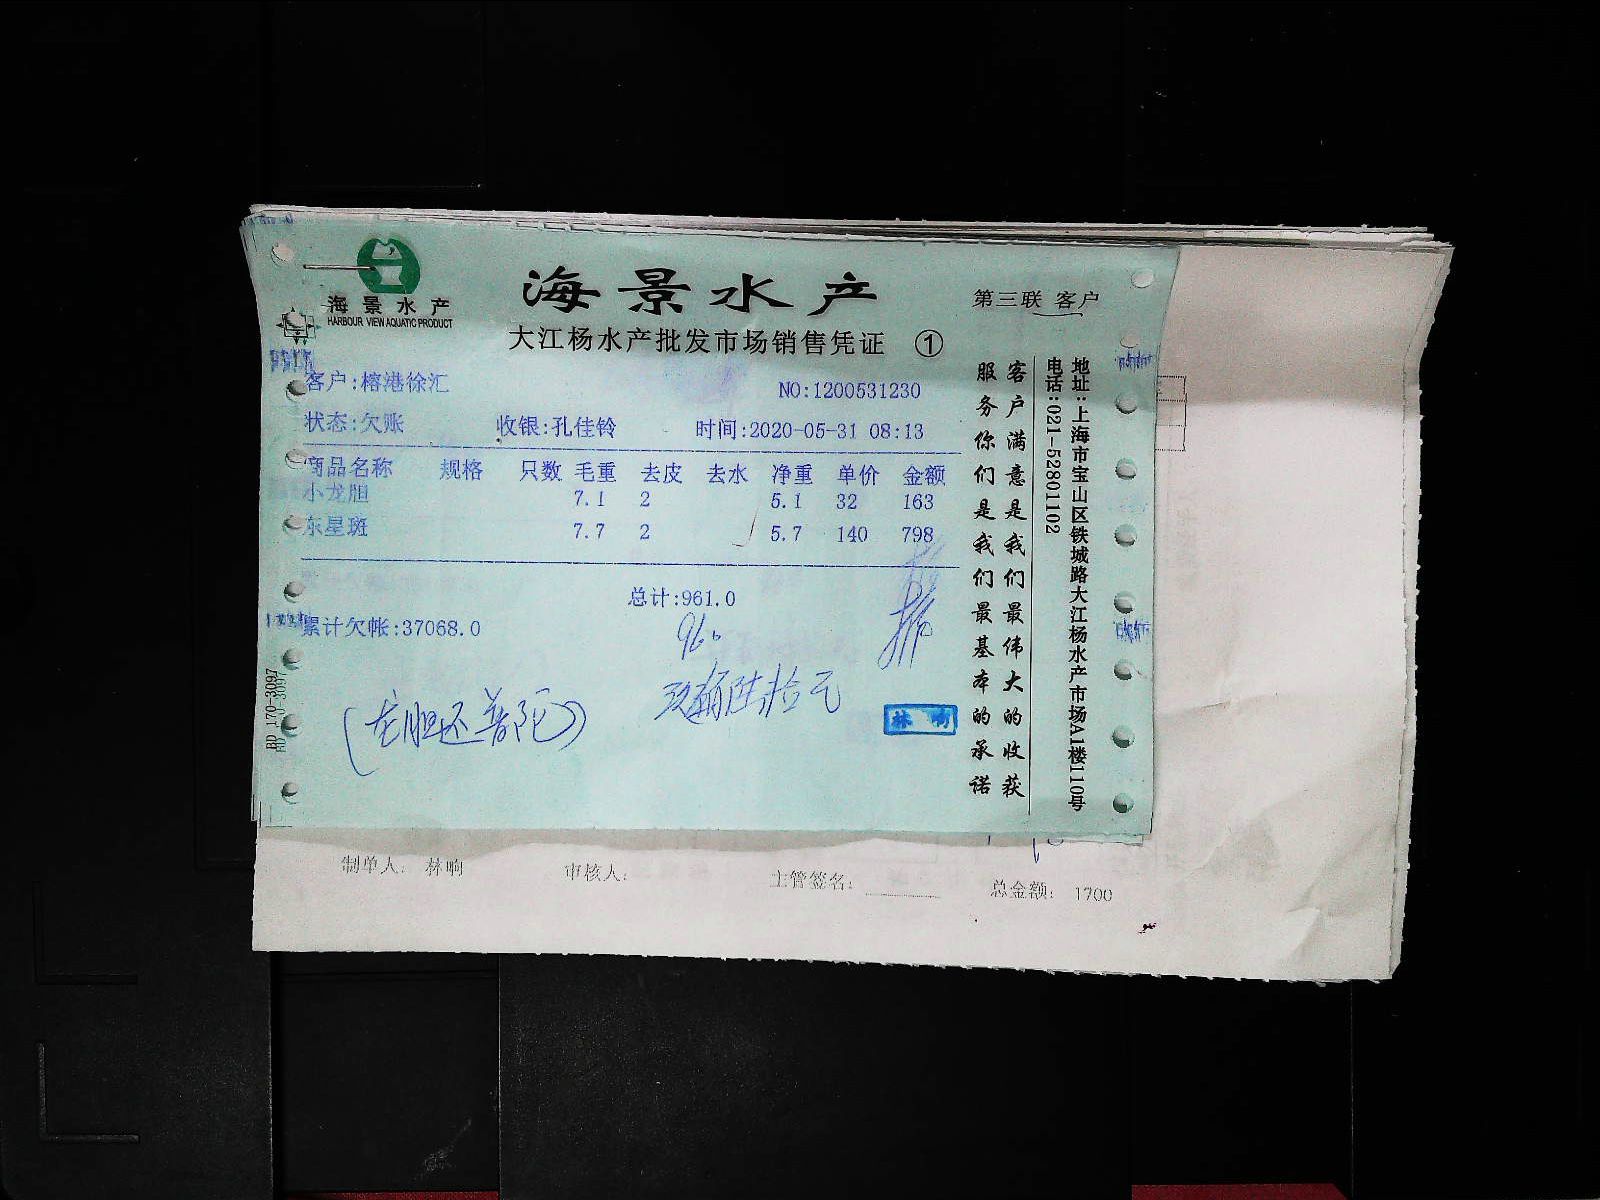 海景水产
HARBOUR VIEW AQUATIC PRODUCT
海景水产
第三联 客户
大江杨水产批发市场销售凭证 ①
客户:榕港徐汇
NO:1200531230
状态:欠账 收银:孔佳铃 时间:2020-05-31 08:13
商品名称 规格 只数 毛重 去皮 去水 净重 单价 金额
小龙胆 7.1 2 5.1 32 163
东星斑 7.7 2 5.7 140 798
总计:961.0
累计欠帐:37068.0
960
玖佰陆拾元
(龙胆还普陀)
林响
客户满意是我们最伟大的收获
服务你们是我们最基本的承诺
地址:上海市宝山区铁城路大江杨水产市场A1楼110号
电话:021-52801102
BD 170-3097
制单人: 林响 审核人: 主管签名: 总金额: 1700